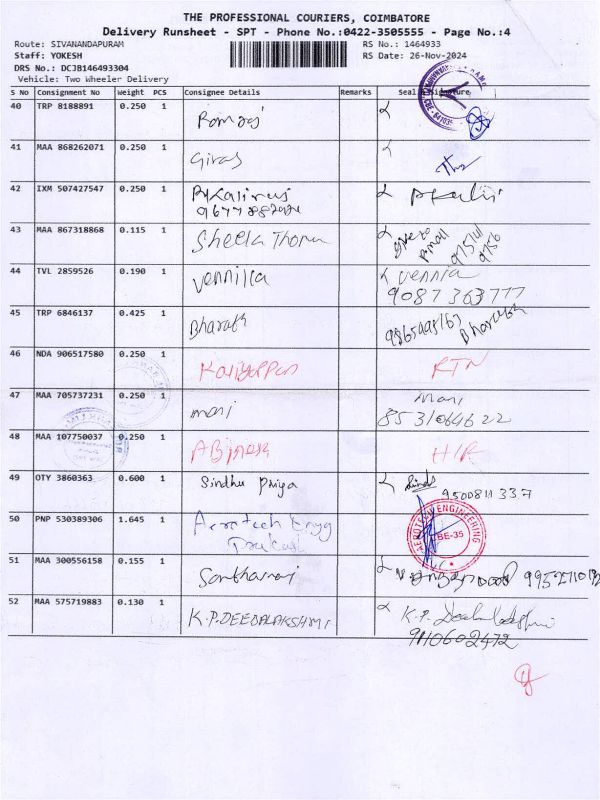 THE PROFESSIONAL COURIERS, COIMBATORE
Delivery Runsheet - SPT - Phone No.:0422-3505555 - Page No.:4
Route: SIVANANDAPURAM RS No.: 1464933
Staff: YOKESH RS Date: 26-Nov-2024
DRS No.: DCJB146493304
Vehicle: Two Wheeler Delivery
S No Consignment No Weight PCS Consignee Details Remarks Seal Signature
40 TRP 8188891 0.250 1 Ramraj
41 MAA 868262071 0.250 1
42 IXM 507427547 0.250 1
43 MAA 867318868 0.115 1 Sheela Thomas
44 TVL 2859526 0.190 1 Vennilla Vennia
9087363777
45 TRP 6846137 0.425 1 Bharath Bharath
46 NDA 906517580 0.250 1 Kaliyappan RTN
47 MAA 705737231 0.250 1 mani Mani
8531064622
48 MAA 107750037 0.250 1 ABinesh
49 OTY 3860363 0.600 1 Sindhu Priya
9500811337
50 PNP 530389306 1.645 1 Aerotech Engg
Prakash
AEROTECH ENGINEERING
BE-35
51 MAA 300556158 0.155 1
52 MAA 575719883 0.130 1 K.P.DEEBALAKSHMI K.P. Deebalakshmi